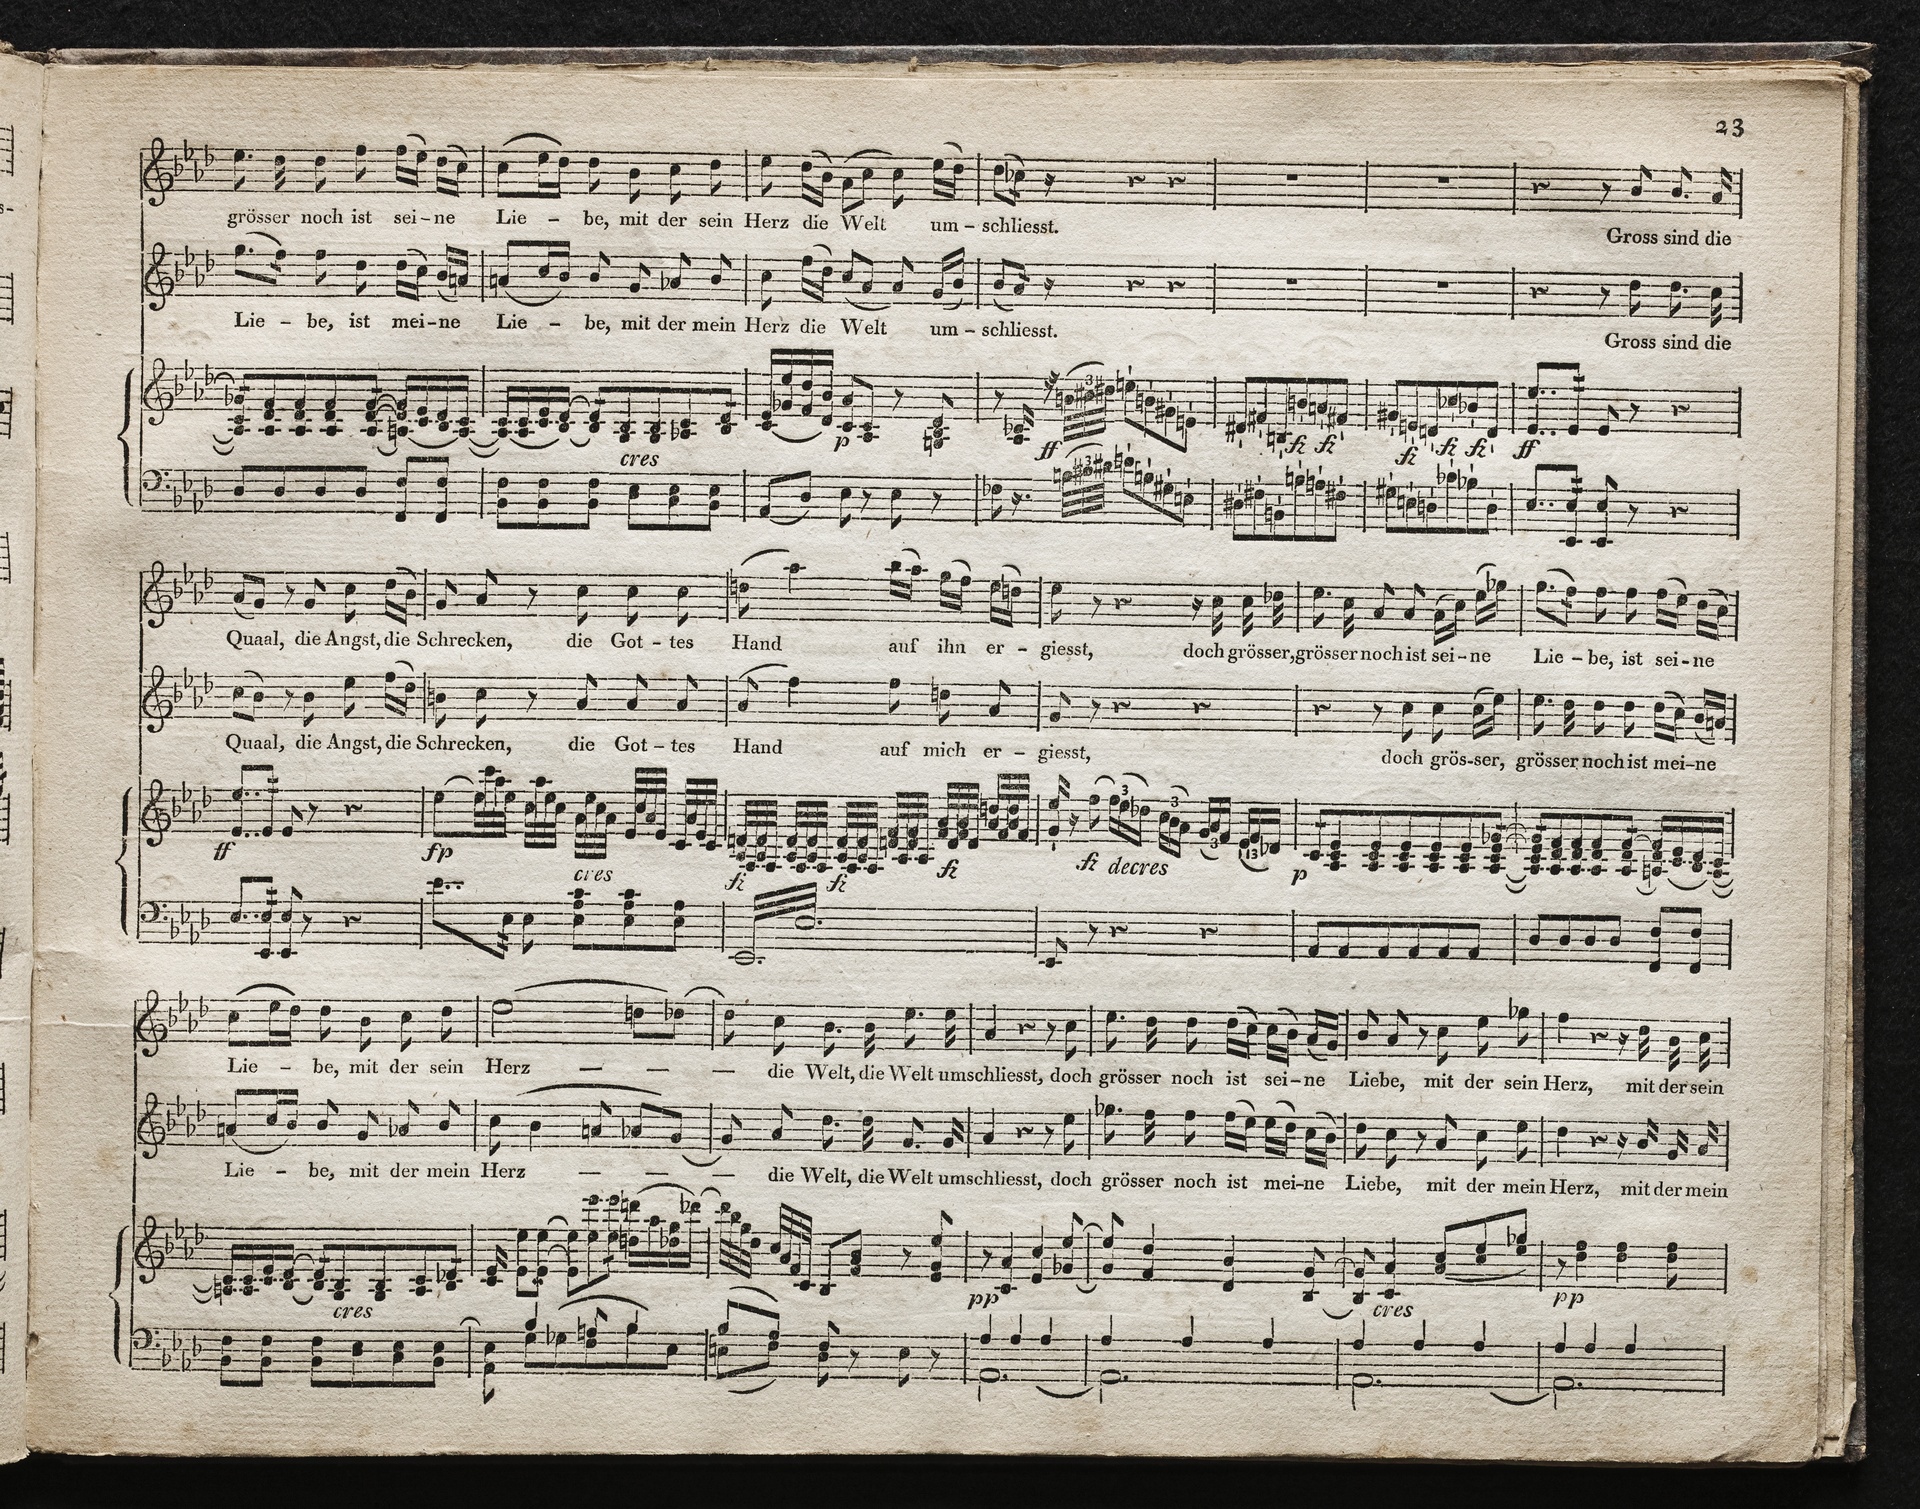 23
grösser noch ist sei-ne Lie - be, mit der sein Herz die Welt um-schliesst. Gross sind die
Lie - be, ist mei-ne Lie - be, mit der mein Herz die Welt um-schliesst. Gross sind die
3 3
p
cres
ff fz fz fz fz fz ff
3 3
Quaal, die Angst, die Schrecken, die Got-tes Hand auf ihn er-giesst, doch grösser, grösser noch ist sei-ne Lie-be, ist sei-ne
Quaal, die Angst, die Schrecken, die Got-tes Hand auf mich er-giesst, doch grös-ser, grösser noch ist mei-ne
3 3
3 13
ff fp cres fz fz fz fz decres p
Lie - be, mit der sein Herz — — — die Welt, die Welt umschliesst, doch grösser noch ist sei-ne Liebe, mit der sein Herz, mit der sein
Lie - be, mit der mein Herz — — — die Welt, die Welt umschliesst, doch grösser noch ist mei-ne Liebe, mit der mein Herz, mit der mein
cres pp cres pp